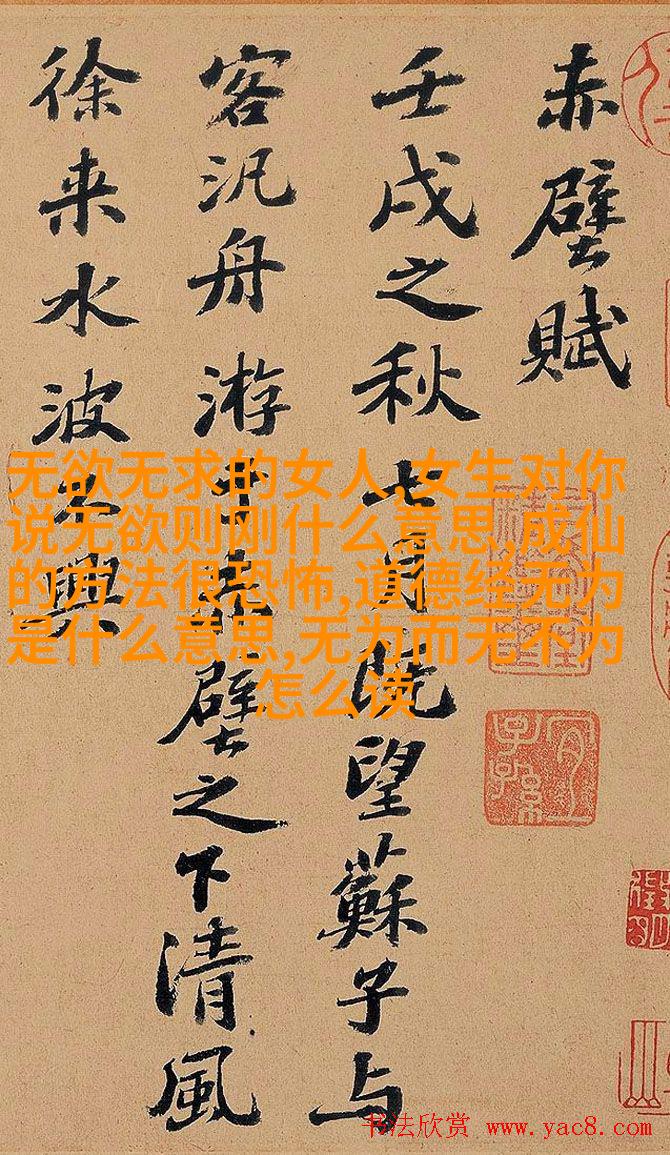 赤壁賦
壬戌之秋七月既望蘇子与
客汎舟游于赤壁之下清風
徐来水波不興
无欲无求的女人,女生对你
说无欲则刚什么意思,成仙
的方法很恐怖,道德经无为
是什么意思,无为而无不为
怎么读
书法欣赏 www.yac8.com